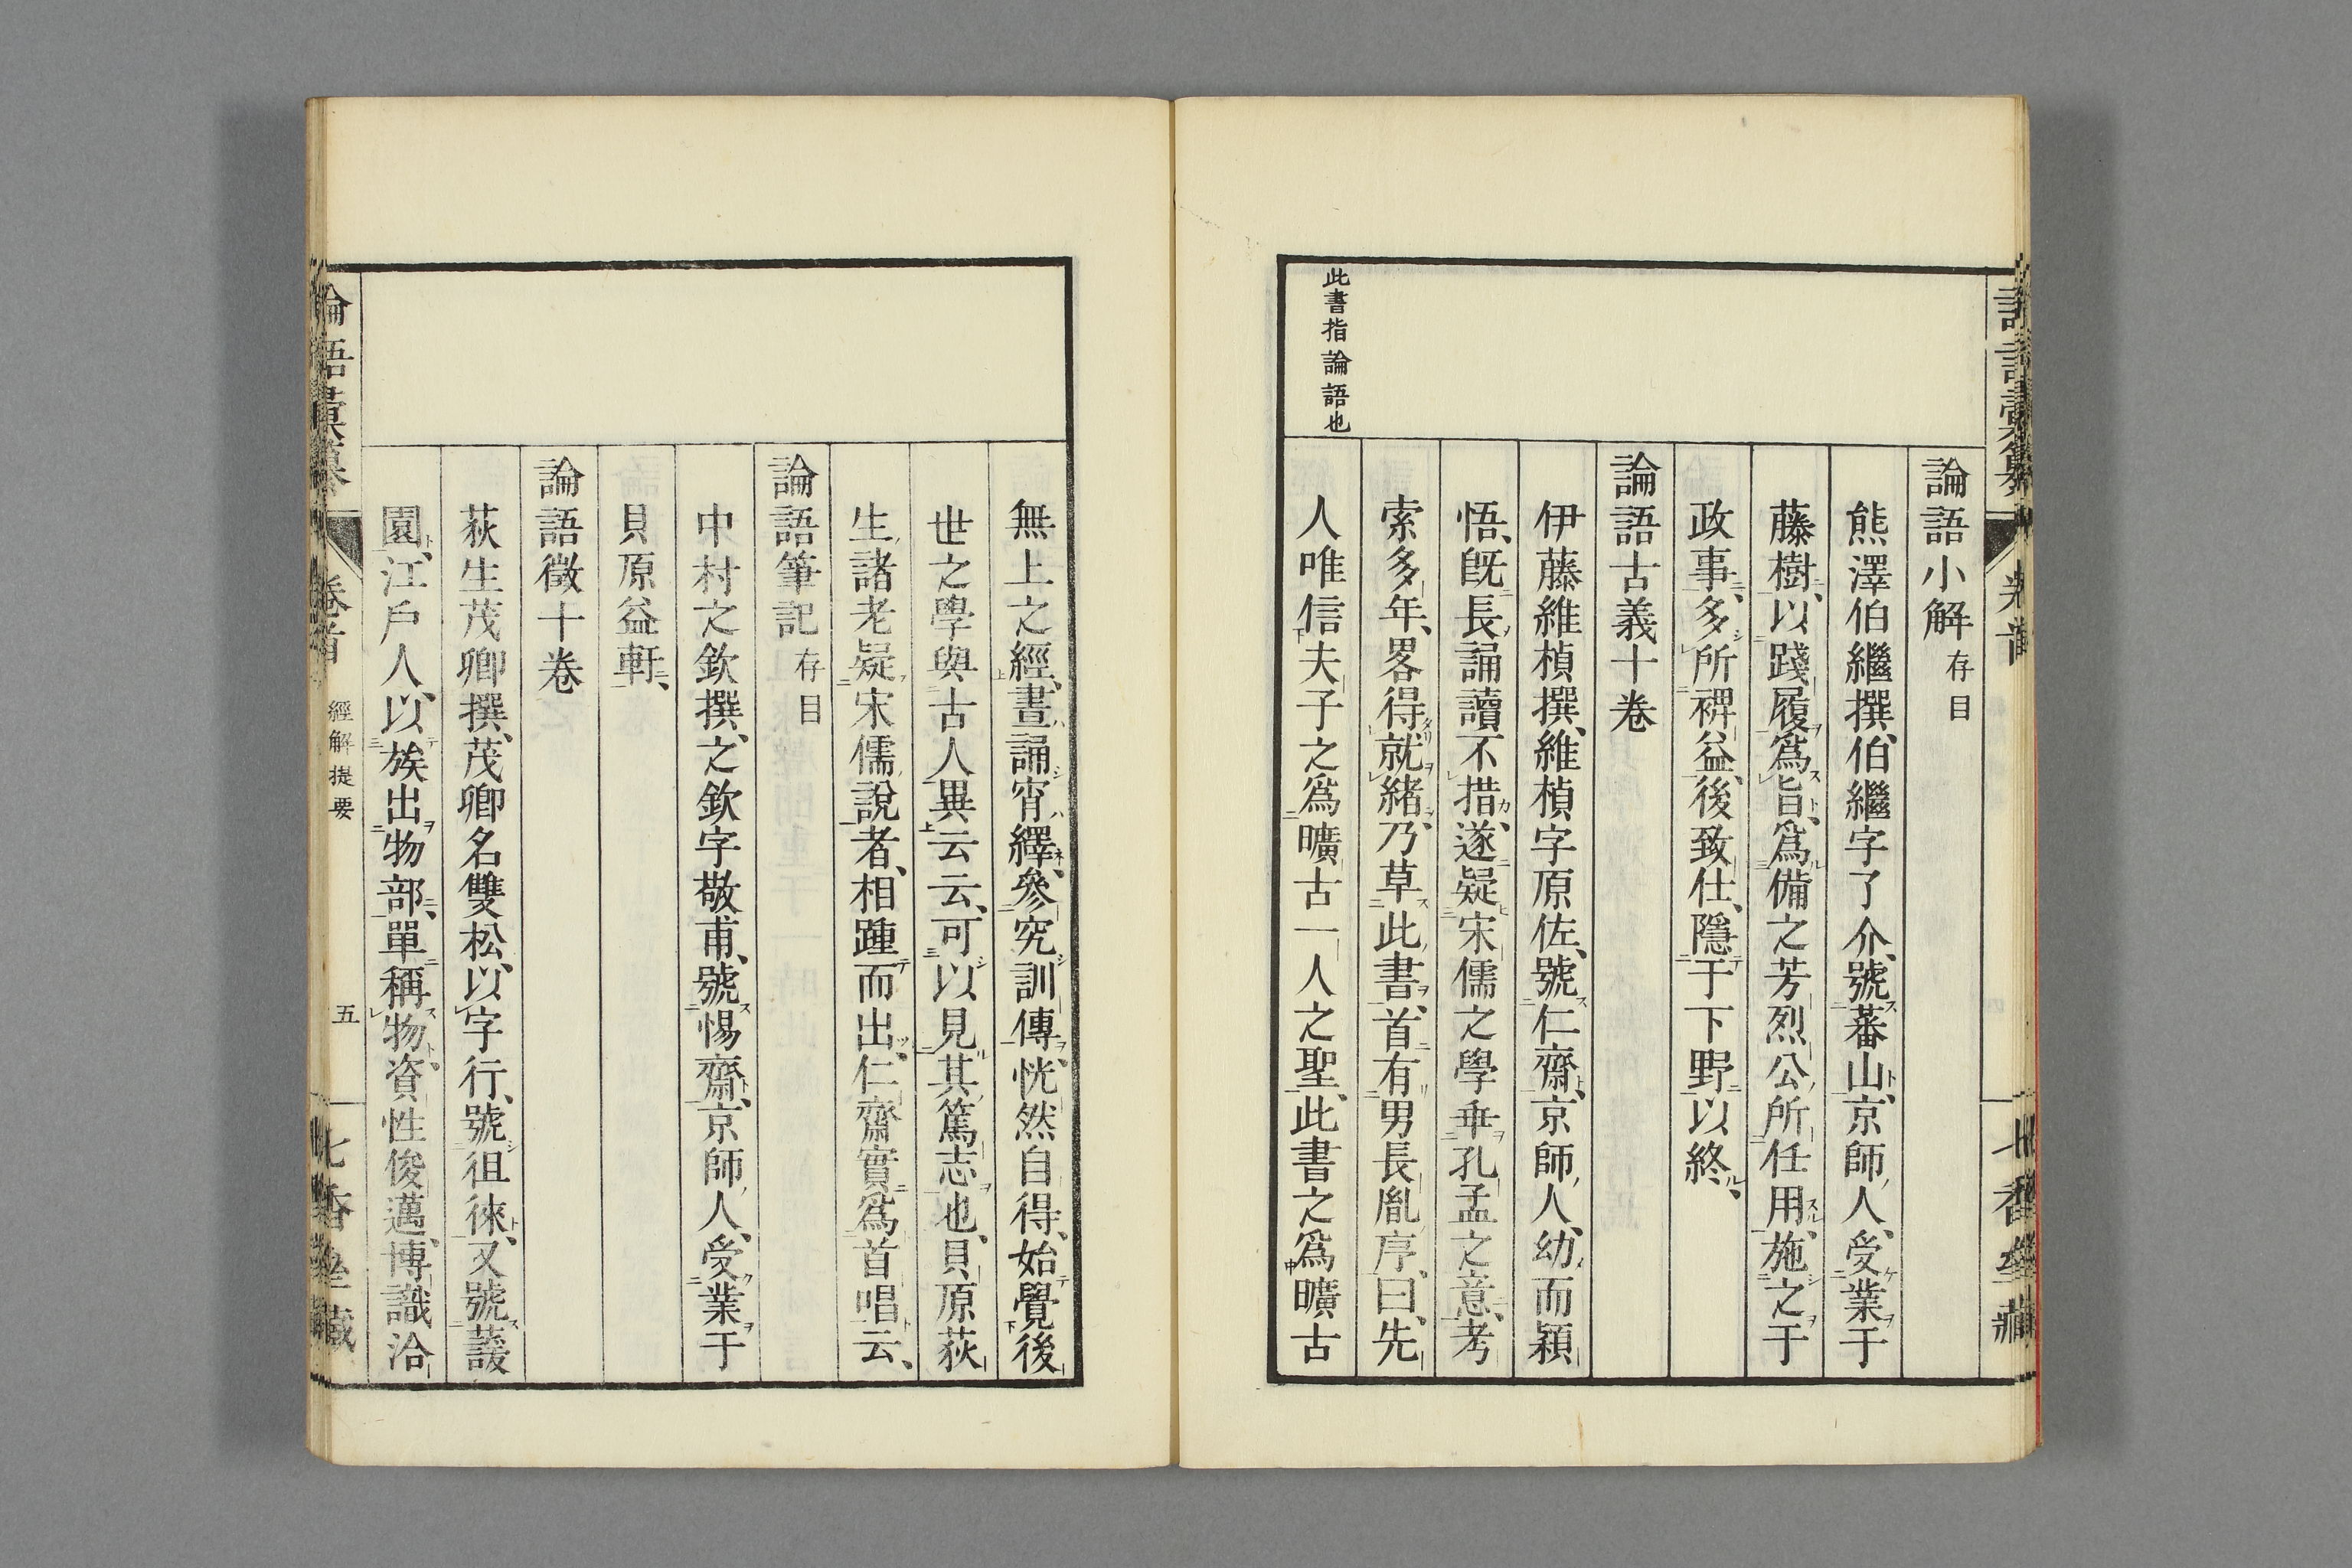 論語小解存目
熊澤伯繼撰、伯繼字了介、號蕃山、京師人、受業于
藤樹、以踐履爲旨、爲備之芳烈公所任用、施之于
政事、多所裨益、後致仕、隱于下野以終、
論語古義十卷
伊藤維楨撰、維楨字原佐、號仁齋、京師人、幼而穎
悟、旣長、誦讀不措、遂疑宋儒之學乖孔孟之意、考
索多年、畧得就緒、乃草此書、首有男長胤序、曰、先
人唯信夫子之爲曠古一人之聖、此書之爲曠古
此書指論語也
無上之經、晝誦宵繹、參究訓傳、恍然自得、始覺後
世之學與古人異云云、可以見其篤志也、貝原荻
生諸老疑宋儒說者、相踵而出、仁齋實爲首唱云、
論語筆記存目
中村之欽撰、之欽字敬甫、號惕齋、京師人、受業于
貝原益軒、
論語徵十卷
荻生茂卿撰、茂卿名雙松、以字行、號徂徠、又號蘐
園、江戶人、以族出物部、單稱物、資性俊邁、博識洽
論語彙纂 卷首 經解提要 五